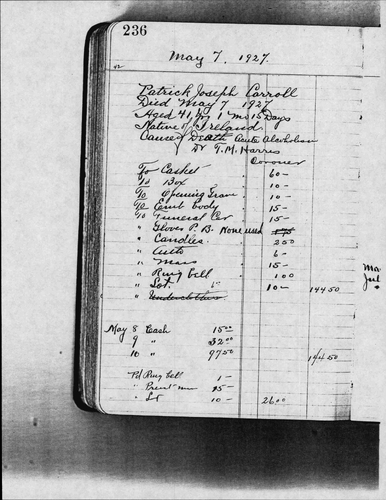 236
May 7, 1927.
42
Patrick Joseph Carroll
Died May 7 1927
Aged 41 yrs 1 Mo 15 Days
Native of Ireland
Cause of Death Acute Alcoholism
Dr T. M. Harris
Coroner
To Casket 60 -
To Box 10 -
To Opening Grave 10 -
To Emb body 15 -
To Funeral Car 15 -
" Gloves P. B. None used 1 75
" Candles 2 50
" Auto 6 -
" Mass 15 -
" Ring bell 1 00
" Lot 10 - 144 50
" Underclothes
May 8 Cash 15 00
9 " 32 00
10 " 97 50
144 50
Pd Ring bell 1 -
" 15 -
" Lot 10 - 26 00
Ma
Jul